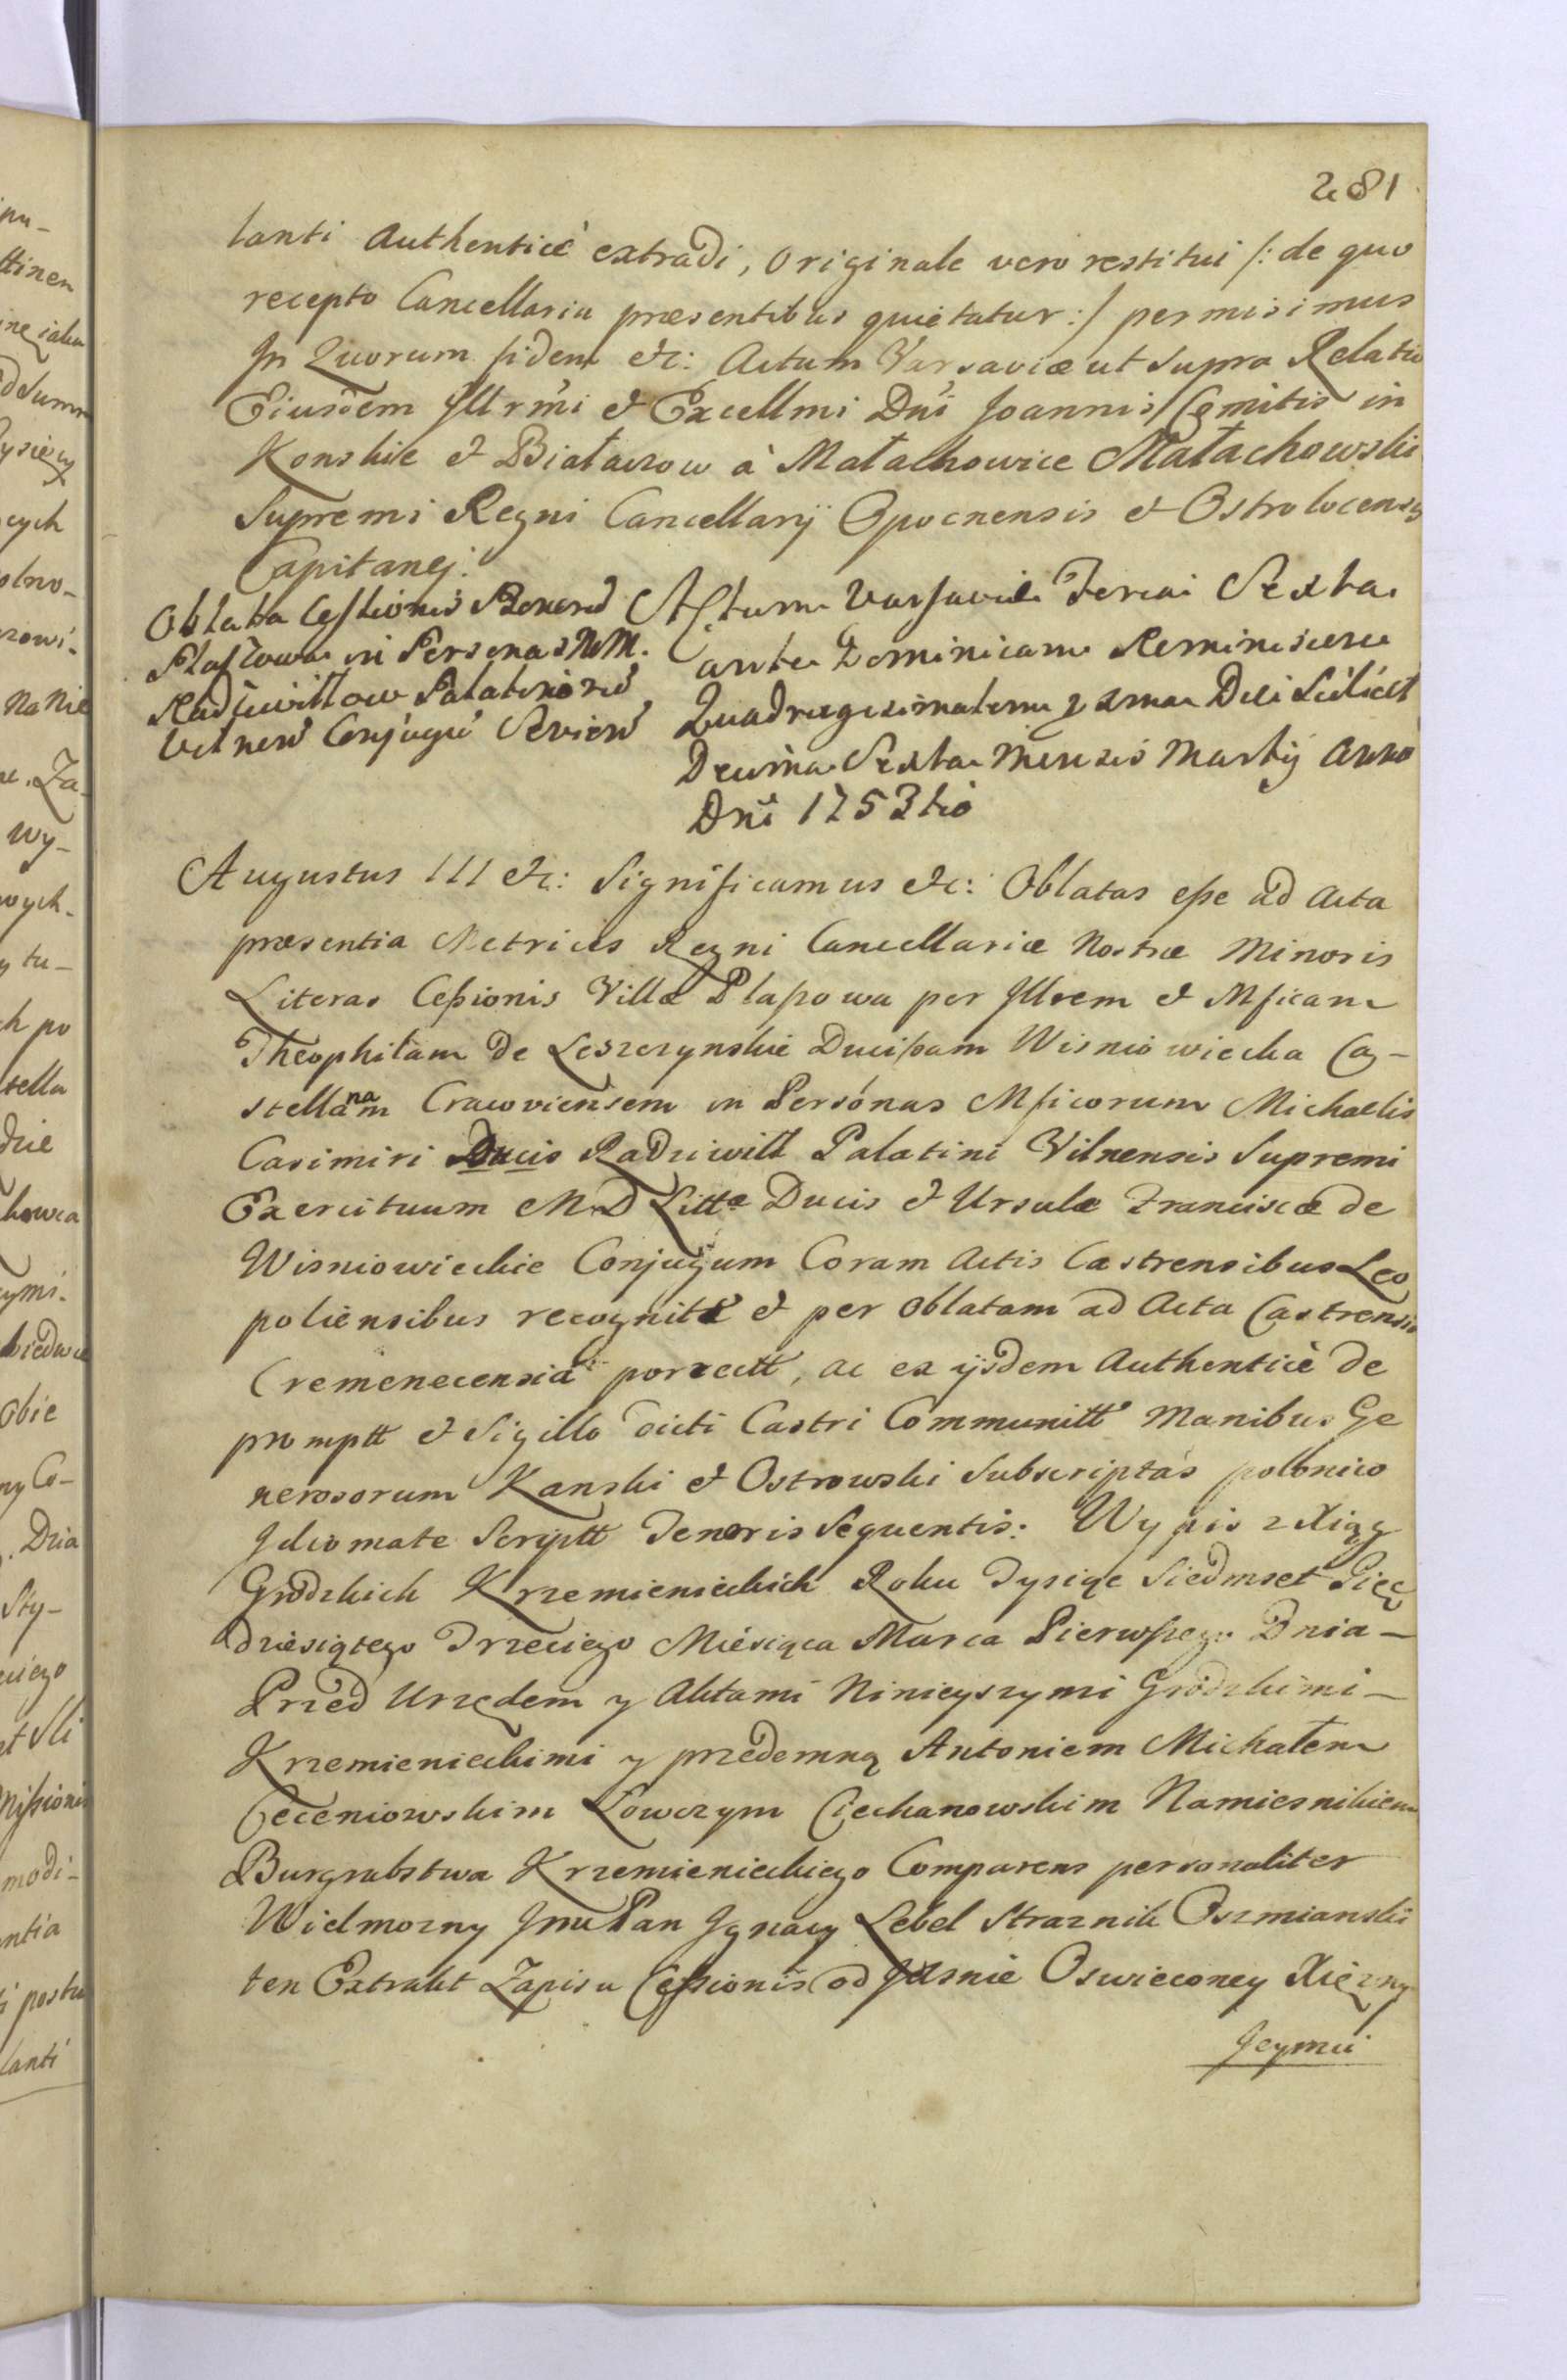 281
lanti Authenticè extradi, Originale vero restitui /: de quo
recepto Cancellaria præsentibus quietatur :/ permisimus
In Quorum fidem etc: Actum Varsaviæ ut supra Relatio
Eiusdem Illrmi et Excellmi Dni Joannis Comitis in
Konskie et Białaczow à Małachowice Małachowski
Supremi Regni Cancellarij Opocnensis et Ostrolocensis
Capitanej.
Oblata Cessionis Bonorũ
Plaszowa in Personas MM.
Radziwiłłow Palatinorũ
Vilnen Conjugũ Servien
Actum Varsaviæ Feria Sexta
ante Dominicam Reminiscere
Quadragesimalem 2dma Die Scilicet
Decima Sexta Mensis Martij Anno
Dni 1753tio
Augustus III etc: Significamus etc: Oblatas esse ad Acta
præsentia Metrices Regni Cancellariæ Nostræ Minoris
Literas Cessionis Villæ Plaszowa per Illrem et Mficam
Theophilam de Leszczynskie Ducissam Wisniowiecka Ca-
stellanam Cracoviensem in Personas Mficorum Michaelis
Casimiri Ducis Radziwiłł Palatini Vilnensis Supremi
Exercituum M D Littæ Ducis et Ursulæ Franciscæ de
Wisniowieckie Conjugum Coram Actis Castrensibus Leo
poliensibus recognitt et per Oblatam ad Acta Castrensia
Cremenecensia porrectt, ac ex ijsdem Authenticè de
promptt et Sigillo dicti Castri Communitt Manibus Ge
nerosorum Kanski et Ostrowski Subscriptas polonico
Idiomate Scriptt Tenoris Sequentis: Wypis z Xiąg
Grodzkich Krzemienieckich Roku Tysiąc Siedmset Pięć
dziesiątego Trzeciego Miesiąca Marca Pierwszego Dnia -
Przed Urzędem y Aktami Ninieyszymi Grodzkimi -
Krzemienieckimi y przedemną Antoniem Michałem
Ceceniowskim Łowczym Ciechanowskim Namiesnikiem
Burgrabstwa Krzemienieckiego Comparens personaliter
Wielmozny Jmu Pan Jgnacy Lebel Straznik Oszmianski
ten Extrakt Zapisu Cessionis od Jasnie Oswieconey Xięzny
Jeymci